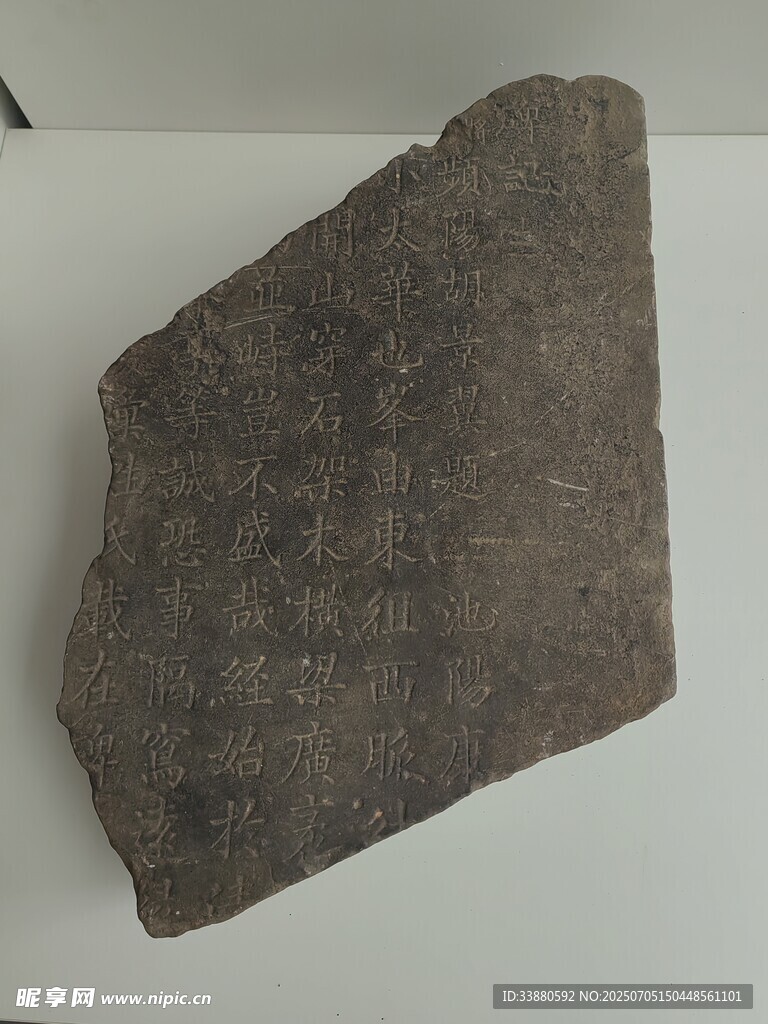 碑記
頻陽胡景翼題 池陽
小太華也峯由東徂西脈
開山穿石架木橫梁廣袤
並峙豈不盛哉経始於
等誠恐事隔寫遠
氏載在碑
昵享网 www.nipic.cn
ID:33880592 NO:20250705150448561101